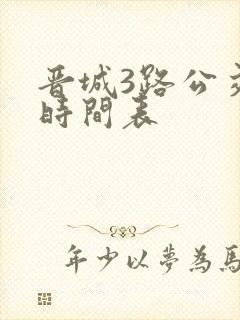 晋城3路公交
時間表
年少以夢為馬